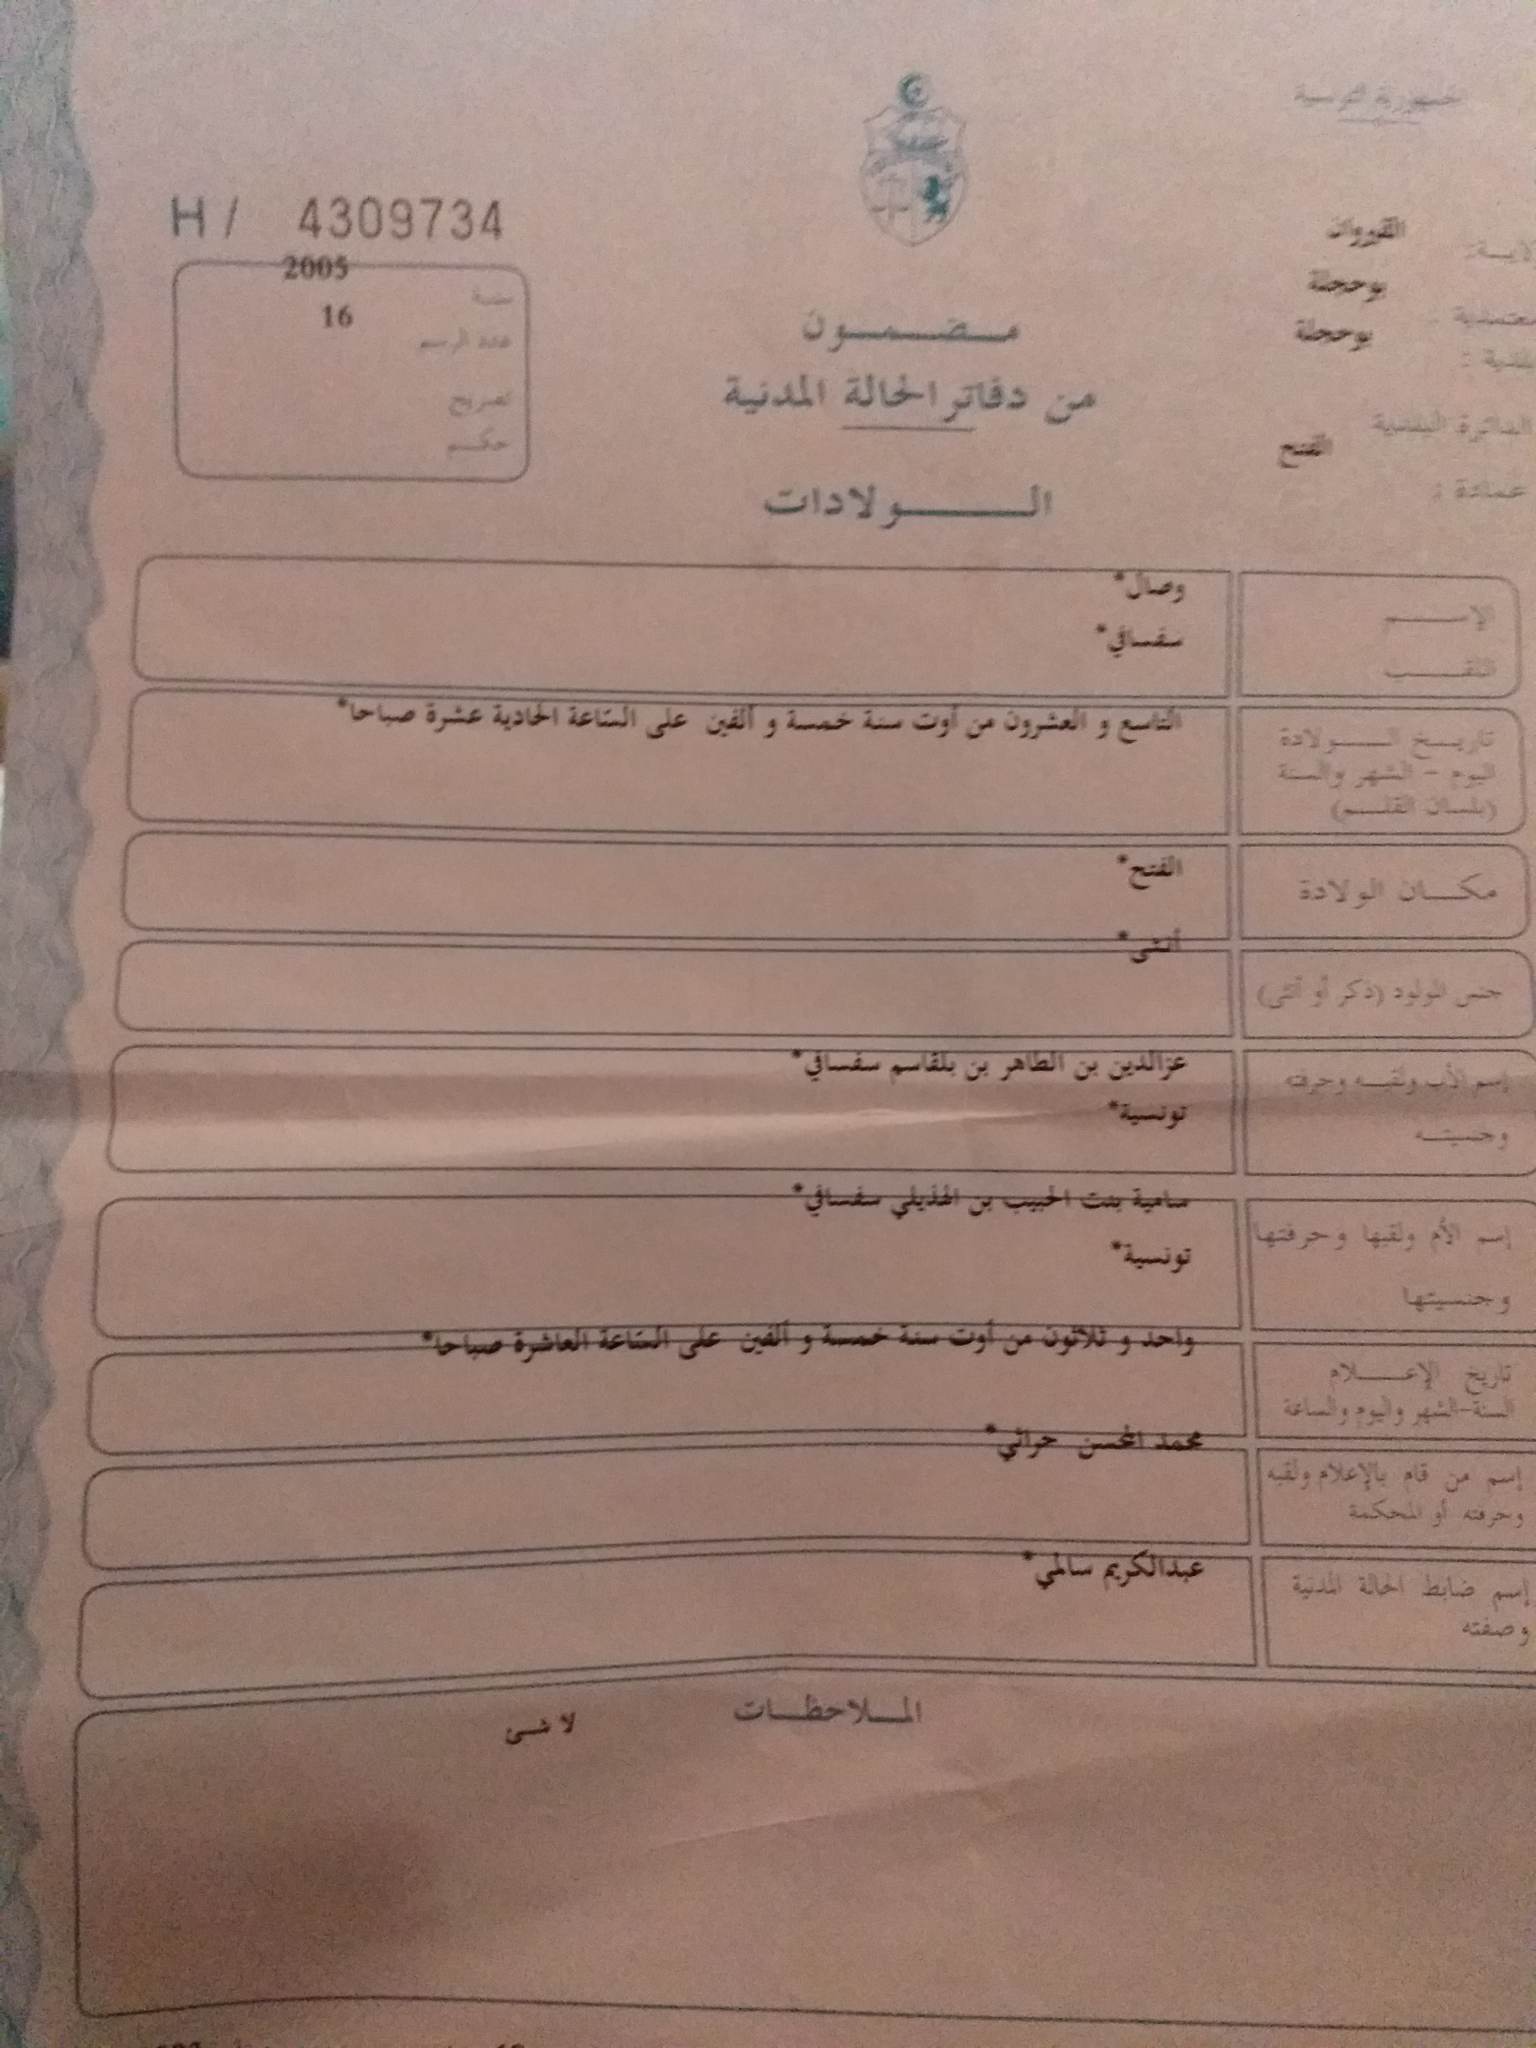 الجمهورية التونسية
H / 4309734
ولاية: القيروان
معتمدية : بوحجلة
بلدية : بوحجلة
الدائرة البلدية
عمادة : الفتح
سنة 2005
عدد الرسم 16
تصريح
حكم
مضمون
من دفاتر الحالة المدنية
الولادات
الإسم وصال*
اللقب سفسافي*
تاريخ الولادة التاسع و العشرون من أوت سنة خمسة و ألفين على الساعة الحادية عشرة صباحا*
اليوم - الشهر والسنة
(بلسان القلم)
مكان الولادة الفتح*
جنس المولود (ذكر أو أنثى) أنثى*
إسم الأب ولقبه وحرفته عزالدين بن الطاهر بن بلقاسم سفسافي*
وجنسيته تونسية*
إسم الأم ولقبها وحرفتها سامية بنت الحبيب بن الهذيلي سفسافي*
وجنسيتها تونسية*
تاريخ الإعلام واحد و ثلاثون من أوت سنة خمسة و ألفين على الساعة العاشرة صباحا*
السنة-الشهر واليوم والساعة
إسم من قام بالإعلام ولقبه محمد المحسن حراثي*
وحرفته أو المحكمة
إسم ضابط الحالة المدنية عبدالكريم سالمي*
وصفته
الملاحظات
لا شئ